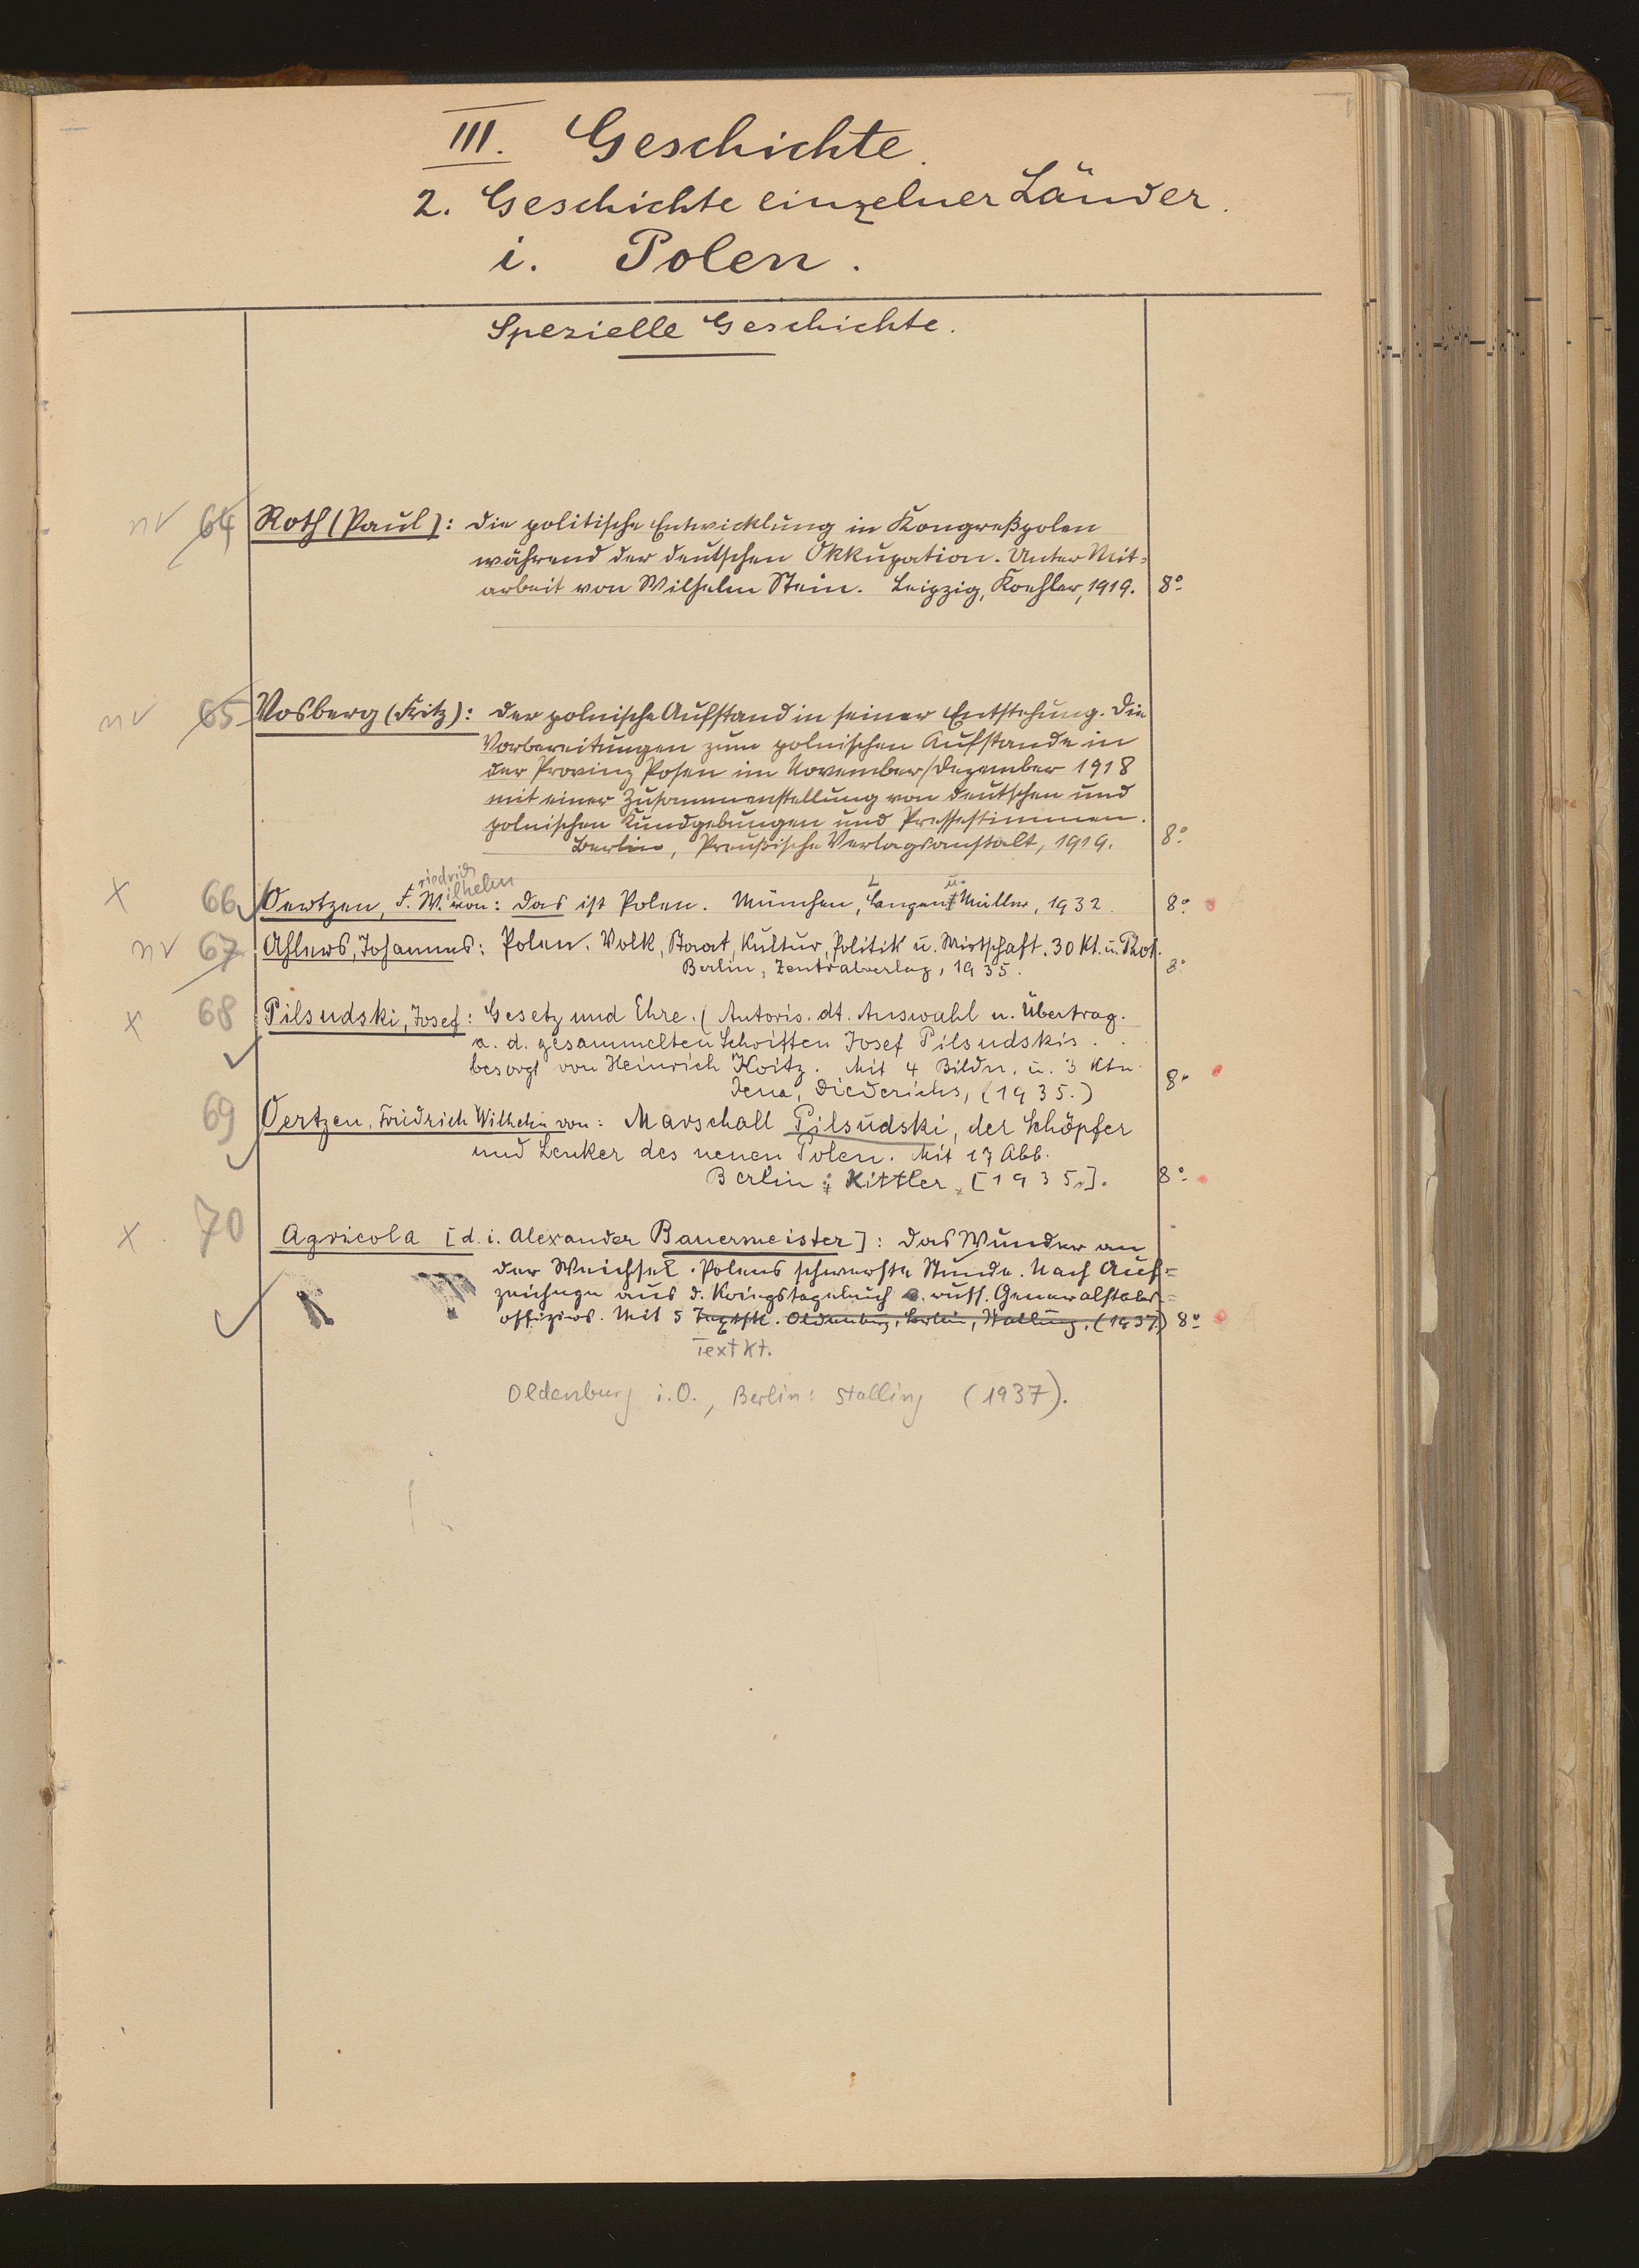 III. Geschichte.
2. Geschichte einzelner Länder.
i. Polen.
Spezielle Geschichte.
nv 64 Roth (Paul): Die politische Entwicklung in Kongreßpolen
während der deutschen Okkupation. Unter Mit-
arbeit von Wilhelm Stein. Leipzig, Koehler, 1919. 8°
nv 65 Vosberg (Fritz): Der polnische Aufstand in seiner Entstehung. Die
Vorbereitungen zum polnischen Aufstande in
der Provinz Posen im November/Dezember 1918
mit einer Zusammenstellung von deutschen und
polnischen Kundgebungen und Pressestimmen.
Berlin, Preußische Verlagsanstalt, 1919. 8°
riedrich ilhelm
x 66 Oertzen, F. W. von: Das ist Polen. München, Langen u. Müller, 1932. 8°
nv 67 Ahlers, Johannes: Polen. Volk, Staat, Kultur, Politik u. Wirtschaft. 30 Kt. u. Phot.
Berlin, Zentralverlag, 1935. 8°
x 68 Pilsudski, Josef: Gesetz und Ehre. (Autoris. dt. Auswahl u. Übertrag.
a. d. gesammelten Schriften Josef Pilsudskis . .
besorgt von Heinrich Koitz. Mit 4 Bildn. u. 3 Ktn.
Jena, Diederichs, (1935.) 8°
69 Oertzen, Friedrich Wilhelm von: Marschall Pilsudski, der Schöpfer
und Lenker des neuen Polen. Mit 17 Abb.
Berlin: Kittler, [1935.]. 8°
x 70 Agricola [d. i. Alexander Bauermeister]: Das Wunder an
der Weichsel. Polens schwerste Stunde. Nach Auf-
zeichngn aus d. Kriegstagebuch e. russ. Generalstabs-
offiziers. Mit 5 Textsk. Oldenburg, Berlin, Stalling, (1937.) 8°
Textkt.
Oldenburg i. O., Berlin: Stalling (1937).